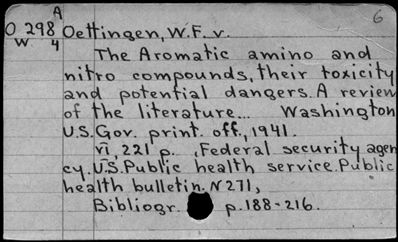 A 6
O 298 Oettingen, W.F. v.
W 4
The Aromatic amino and
nitro compounds, their toxicity
and potential dangers. A review
of the literature... Washington
U.S. Gov. print. off., 1941.
VI, 221 p. , Federal security agen
cy. U.S. Public health service. Public
health bulletin. N 271,
Bibliogr. p. 188-216.